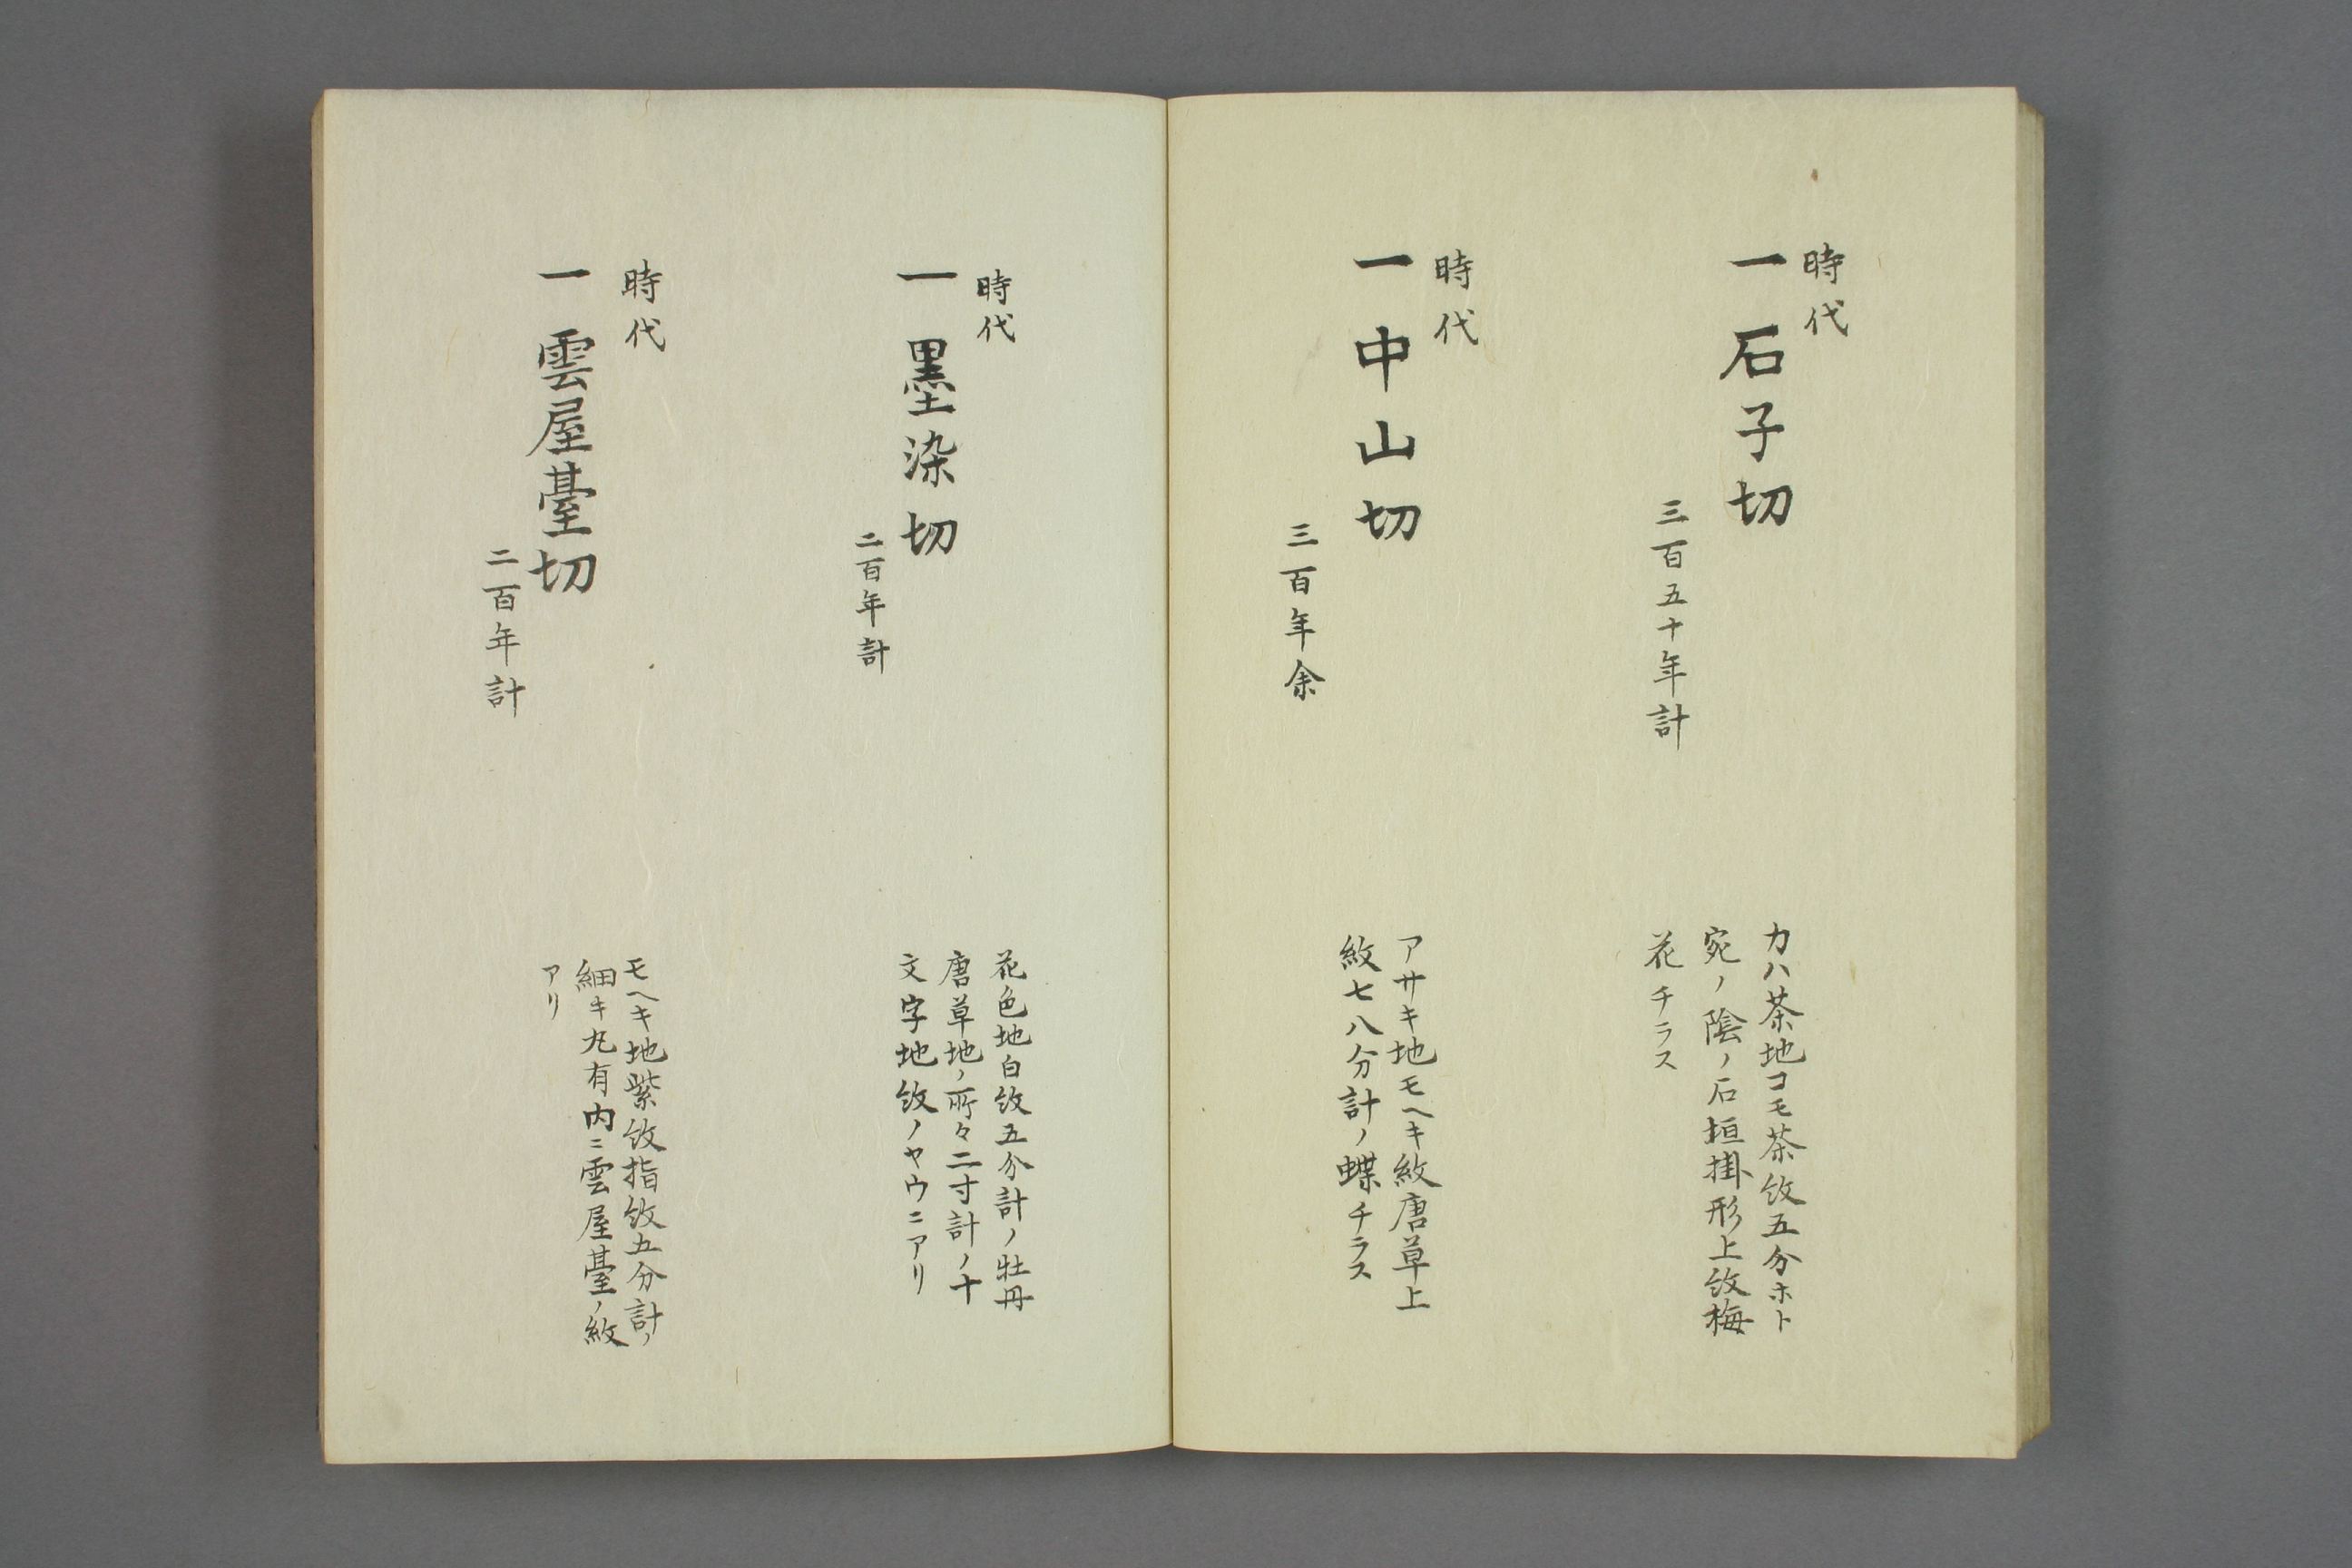 時代
一 石子切
三百五十年計
カハ茶地コモ茶紋五分ホト
宛ノ陰ノ石垣掛形上紋梅
花チラス
時代
一 中山切
三百年余
アサキ地モヘキ紋唐草上
紋七八分計ノ蝶チラス
時代
一 墨染切
二百年計
花色地白紋五分計ノ牡丹
唐草地ノ所々二寸計ノ十
文字地紋ノヤウニアリ
時代
一 雲屋臺切
二百年計
モヘキ地紫紋指紋五分計ノ
細キ丸有内ニ雲屋臺ノ紋
アリ